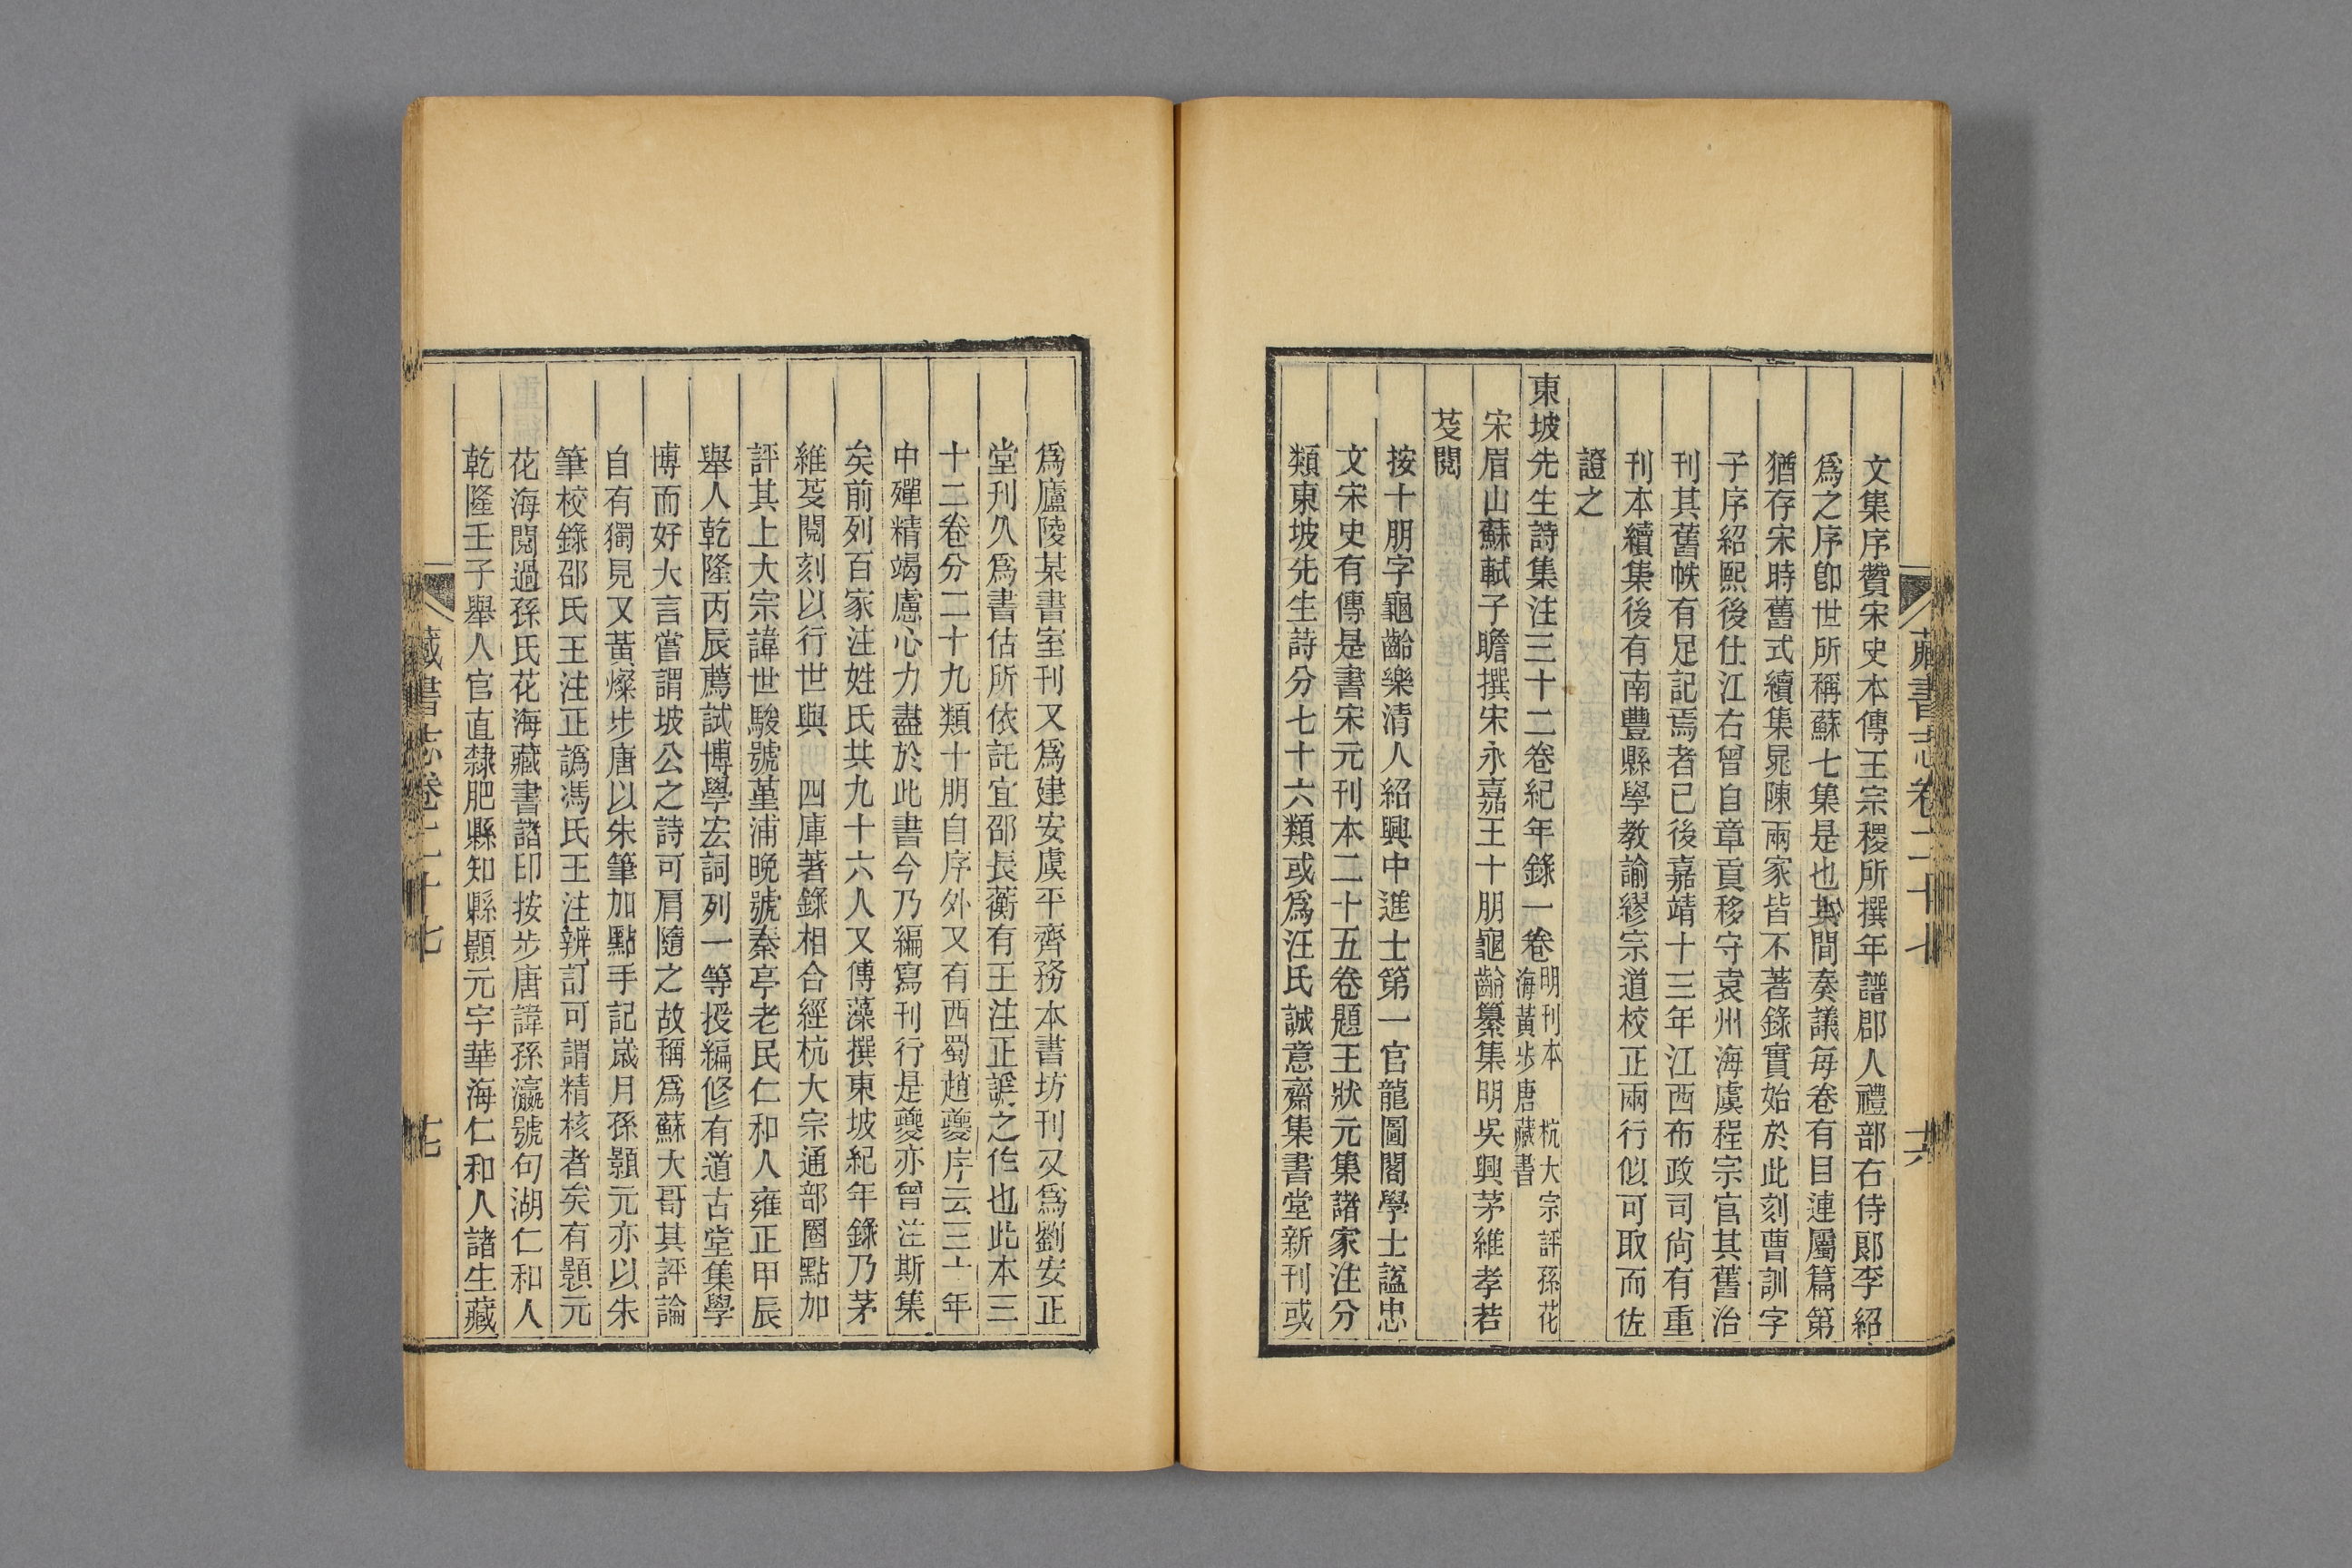 藏書志卷二十七 十六
文集序贊宋史本傳王宗稷所撰年譜郡人禮部右侍郎李紹
爲之序卽世所稱蘇七集是也其間奏議每卷有目連屬篇第
猶存宋時舊式續集晁陳兩家皆不著錄實始於此刻曹訓字
子序紹熙後仕江右曾自章貢移守袁州海虞程宗官其舊治
刊其舊帙有足記焉者已後嘉靖十三年江西布政司尙有重
刊本續集後有南豐縣學教諭繆宗道校正兩行似可取而佐
證之
東坡先生詩集注三十二卷紀年錄一卷 明刊本 杭大宗評孫花
海黃步唐藏書
宋眉山蘇軾子瞻撰宋永嘉王十朋龜齡纂集明吳興茅維孝若
芟閱
按十朋字龜齡樂清人紹興中進士第一官龍圖閣學士諡忠
文宋史有傳是書宋元刊本二十五卷題王狀元集諸家注分
類東坡先生詩分七十六類或爲汪氏誠意齋集書堂新刊或
爲廬陵某書室刊又爲建安虞平齊務本書坊刊又爲劉安正
堂刊久爲書估所依託宜邵長蘅有王注正譌之作也此本三
十二卷分二十九類十朋自序外又有西蜀趙夔序云三十年
中殫精竭慮心力盡於此書今乃編寫刊行是夔亦曾注斯集
矣前列百家注姓氏共九十六人又傅藻撰東坡紀年錄乃茅
維芟閱刻以行世與 四庫著錄相合經杭大宗通部圈點加
評其上大宗諱世駿號堇浦晚號秦亭老民仁和人雍正甲辰
舉人乾隆丙辰薦試博學宏詞列一等授編修有道古堂集學
博而好大言嘗謂坡公之詩可肩隨之故稱爲蘇大哥其評論
自有獨見又黃燦步唐以朱筆加點手記歲月孫顥元亦以朱
筆校錄邵氏王注正譌馮氏王注辨訂可謂精核者矣有顥元
花海閱過孫氏花海藏書諸印按步唐諱孫瀛號句湖仁和人
乾隆壬子舉人官直隸肥縣知縣顥元字華海仁和人諸生藏
藏書志卷二十七 十七